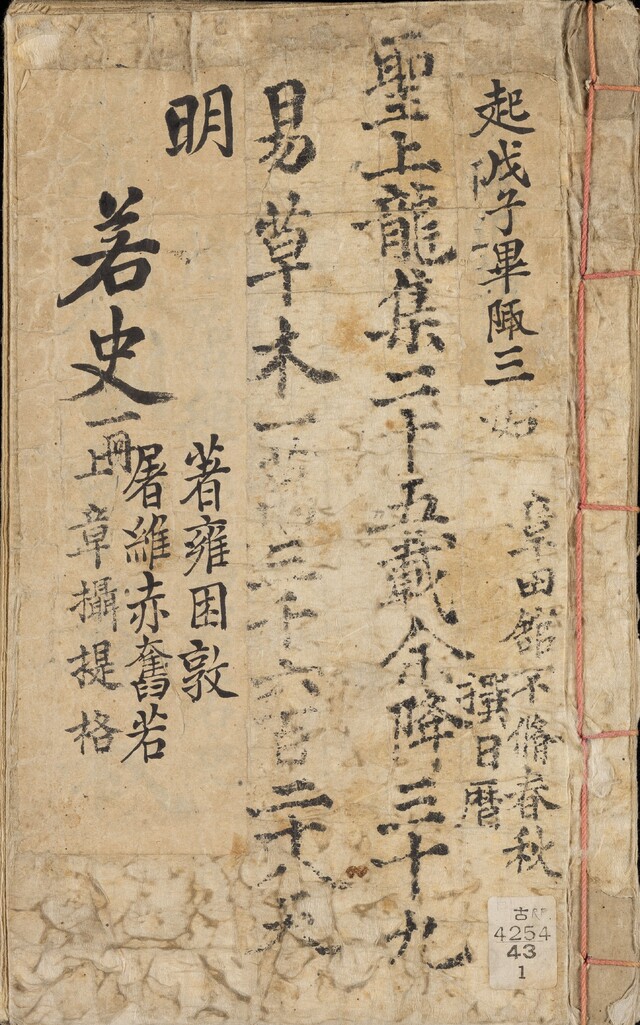 起戊子畢陬三
皇田館不脩春秋
撰日曆
聖上龍集二十五載余降三十九
易草木一百三十六百二十八天
明
若史一冊
著雍困敦
屠維赤奮若
上章攝提格
古
4254
43
1